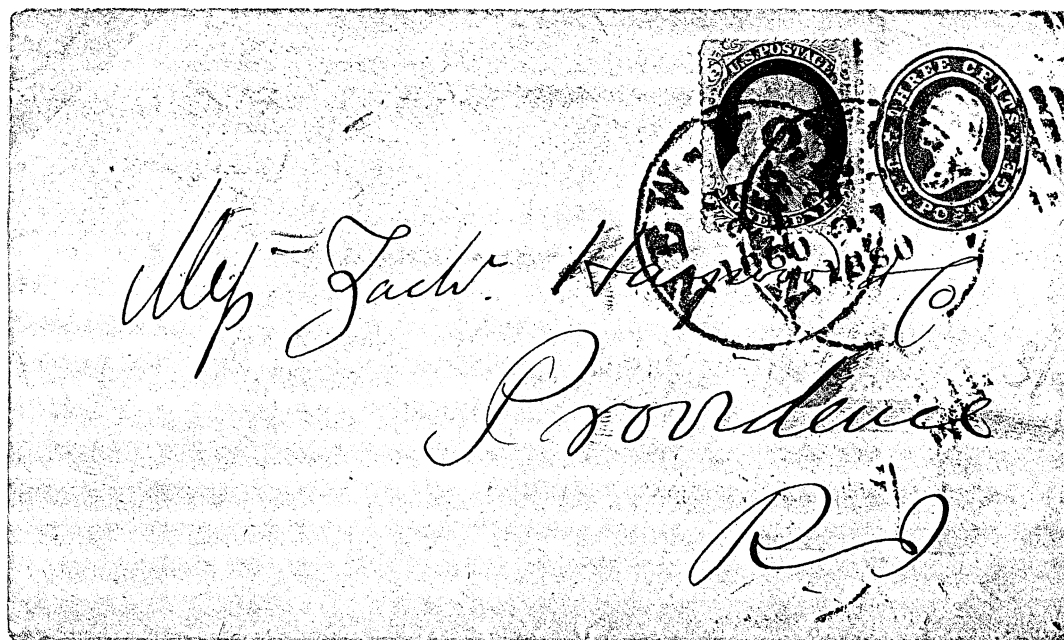 U.S. POSTAGE
ONE CENT
THREE CENTS
U.S. POSTAGE
NEW
1860
1860
Mess Zach.
Providence
R I